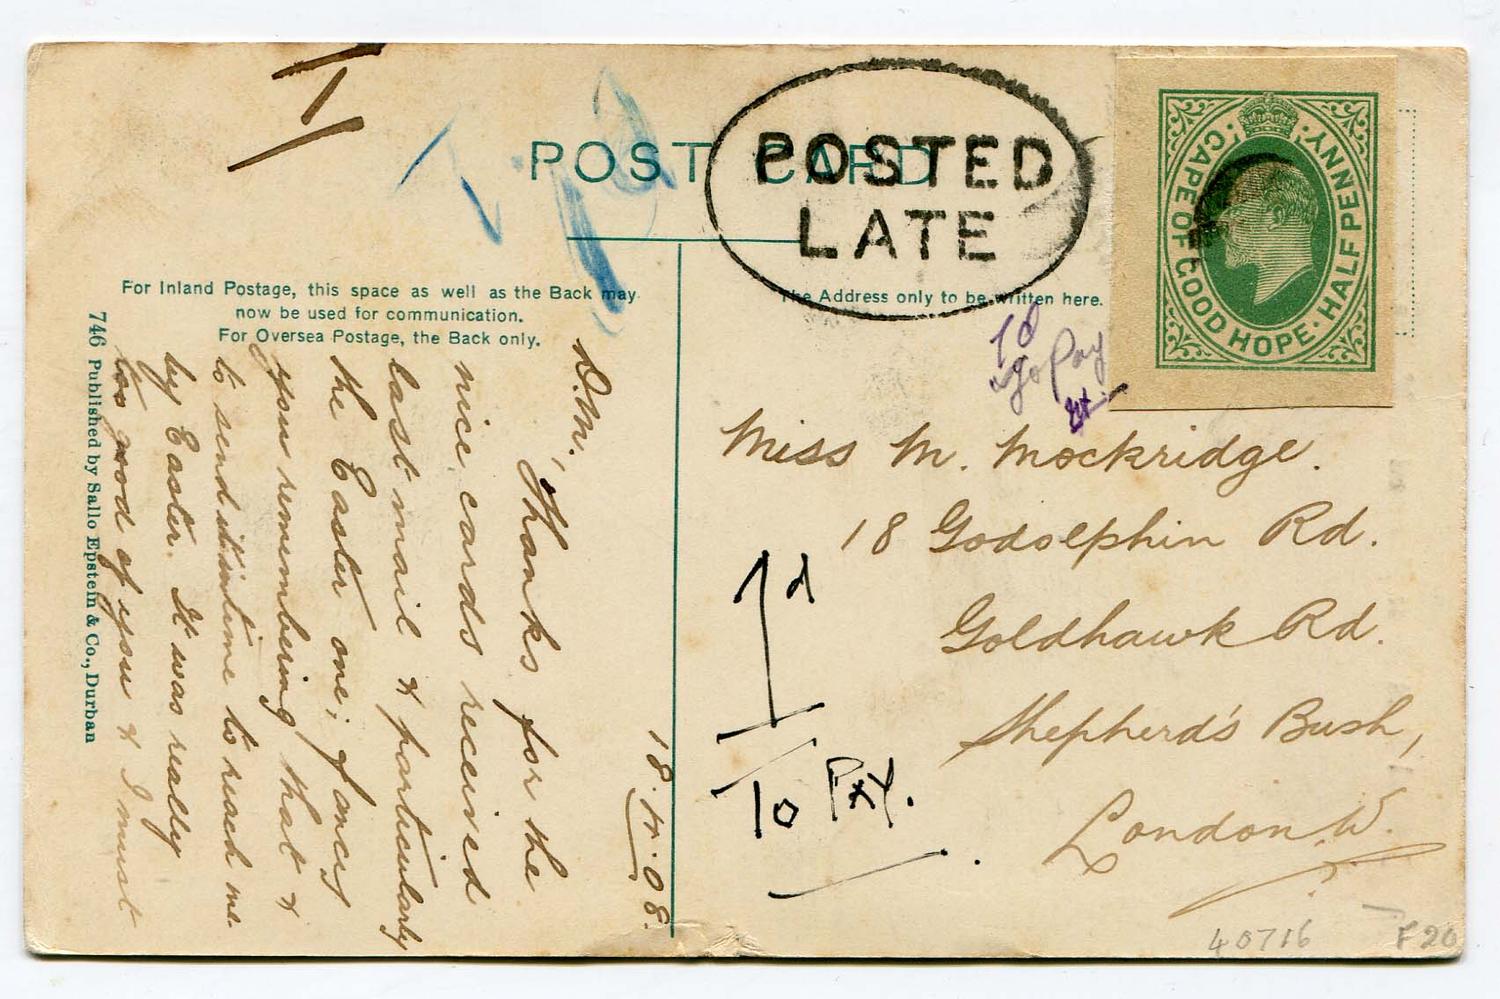 POST CARD
POSTED
LATE
CAPE OF GOOD HOPE · HALF PENNY
For Inland Postage, this space as well as the Back may
now be used for communication.
For Oversea Postage, the Back only.
The Address only to be written here.
746 Published by Sallo Epstein & Co., Durban
1d
To Pay
Miss M. Mockridge.
18 Godolphin Rd.
Goldhawk Rd.
Shepherd's Bush,
London. W.
1d
To PAY.
18.IV.08.
D.M.,
Thanks for the
nice cards received
last mail & particularly
the Easter one; fancy
your remembering that &
to send it in time to reach me
by Easter. It was really
too good of you & I must
40716
F20